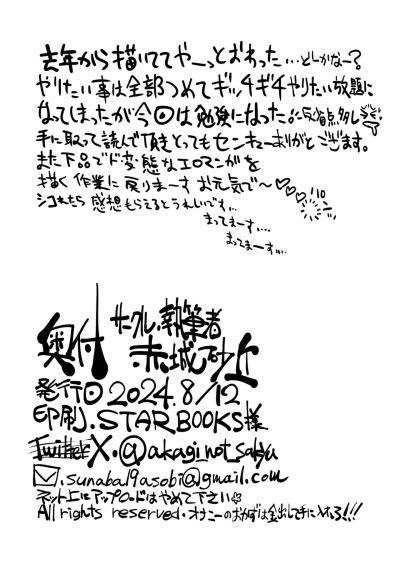 去年から描いててやーっとおわった…どーかなー?
やりたい事は全部つめてギッチギチやりたい放題に
なってしまったが今回は勉強になった。反省点多し
手に取って読んで頂きとってもセンキューありがとうござます。
また下品でド変態なエロマンガを
描く作業に戻りまーすお元気で〜♡♡♡
シコれたら感想もらえるとうれしいです…
まってまーす…
まってまーす…
奥付
サークル.執筆者
赤城砂上
発行日 2024.8/12
印刷.STARBOOKS様
Twitter X.@akagi_not_sakyu
.sunaba19asobi@gmail.com
ネット上にアップロードはやめて下さい
All rights reserved.オナニーのおかずは金出して手に入れろ!!!